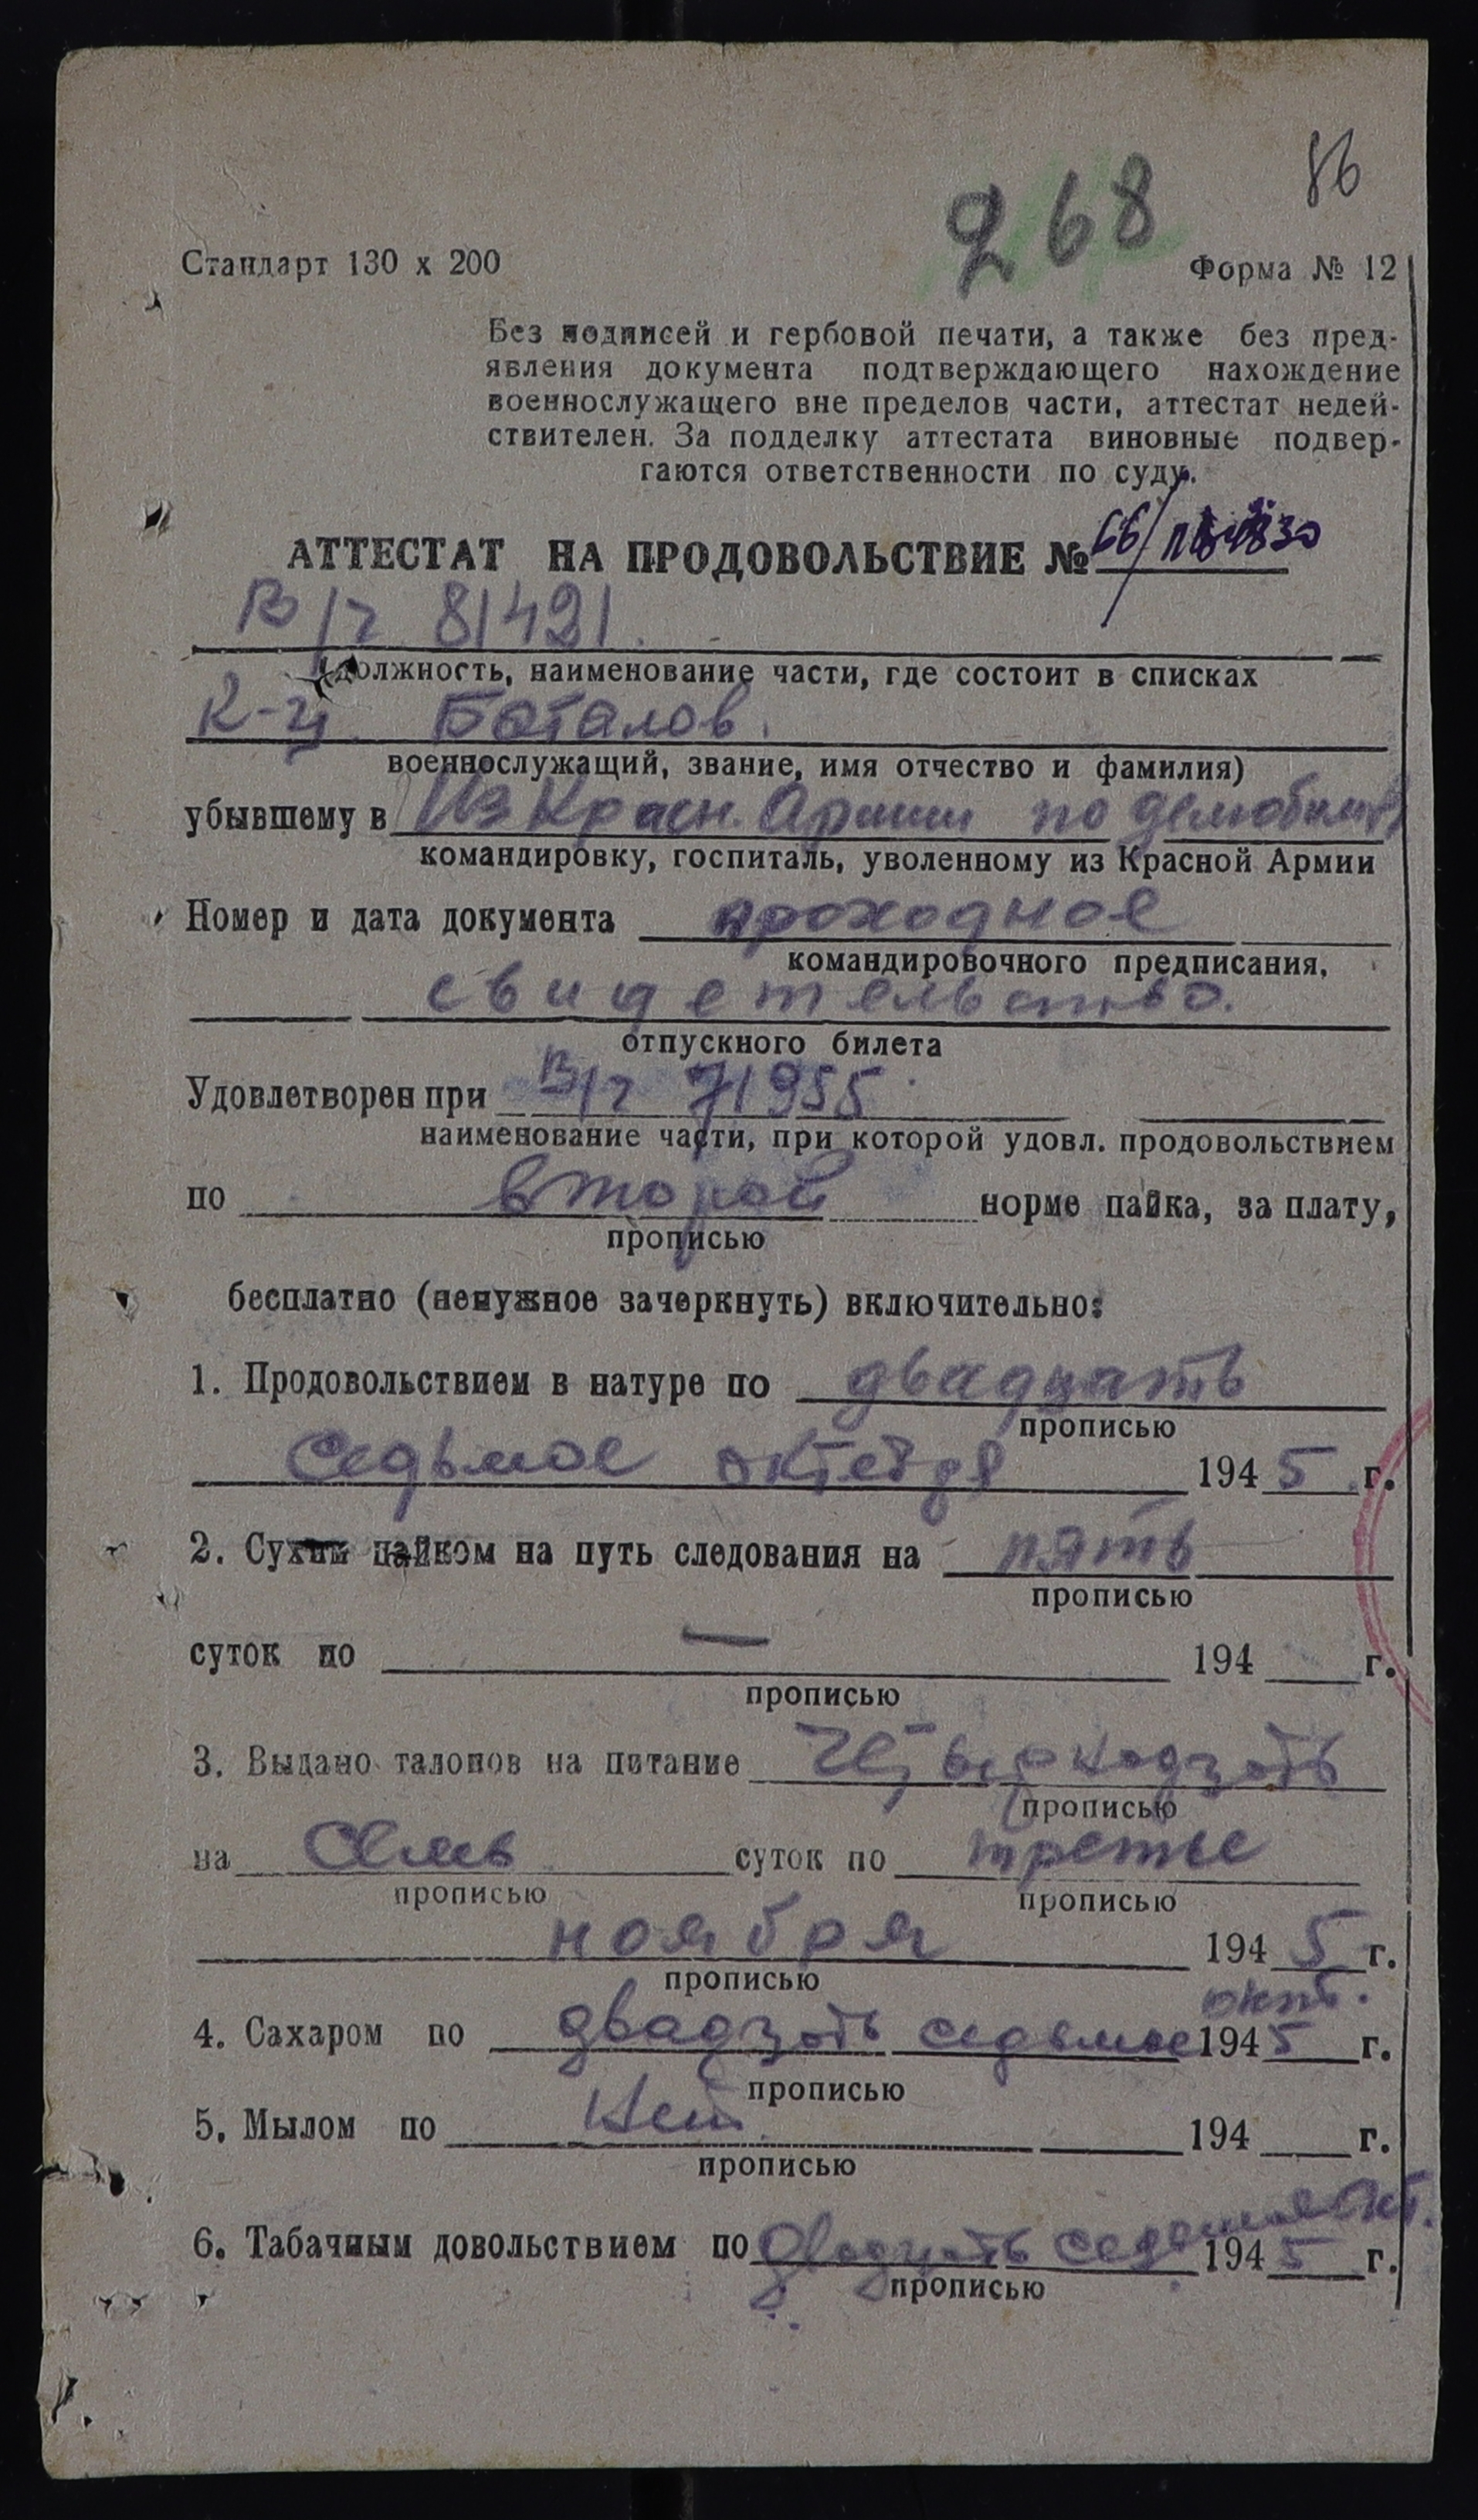 86
268
Стандарт 130 х 200
Форма № 12
Без подписей и гербовой печати, а также без пред-
явления документа подтверждающего нахождение
военнослужащего вне пределов части, аттестат недей-
ствителен. За подделку аттестата виновные подвер-
гаются ответственности по суду.
АТТЕСТАТ НА ПРОДОВОЛЬСТВИЕ № 66/
В/ч 81421.
(должность, наименование части, где состоит в списках
К-ц Баталов.
военнослужащий, звание, имя отчество и фамилия)
убывшему в Из Красн. Армии по демобилиз
командировку, госпиталь, уволенному из Красной Армии
Номер и дата документа проходное
командировочного предписания,
свидетельство.
отпускного билета
Удовлетворен при В/ч 71955
наименование части, при которой удовл. продовольствием
по второй норме пайка, за плату,
прописью
бесплатно (ненужное зачеркнуть) включительно:
1. Продовольствием в натуре по двадцать
прописью
седьмое октября 1945 г.
2. Сухим пайком на путь следования на пять
прописью
суток по — 194 г.
прописью
3. Выдано талонов на питание
прописью
на семь суток по третье
прописью прописью
ноября 1945 г.
прописью
окт.
4. Сахаром по двадзать седьмое 1945 г.
прописью
5. Мылом по Нет 194 г.
прописью
6. Табачным довольствием по двадцать седьмое окт. 1945 г.
прописью